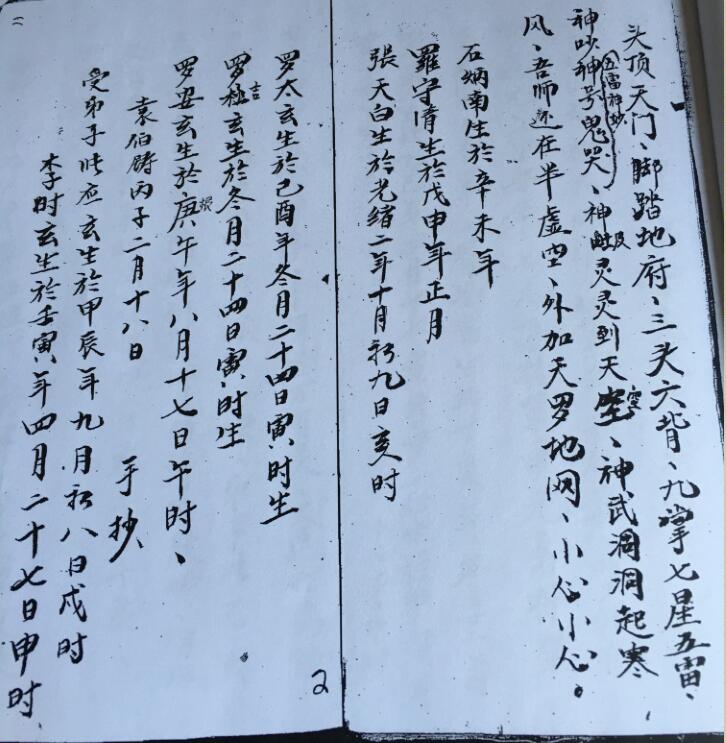 头顶天门、脚踏地府、三头六背、九掌七星五雷、
五雷神吵
神吵神号鬼哭、神灵灵到天空、神武洞洞起寒
风、吾师还在半虚空、外加天罗地网、小心小心。
石炳南生於辛未年
羅守清生於戊申年正月
張天白生於光绪二年十月初九日亥时
罗太玄生於己酉年冬月二十四日寅时生
罗极玄生於冬月二十四日寅时生
吉
罗妥玄生於庚午年八月十七日午时、
袁伯醻丙子二月十八日 手抄
受弟子 应玄生於甲辰年九月初八日戌时
李时玄生於壬寅年四月二十七日申时
2